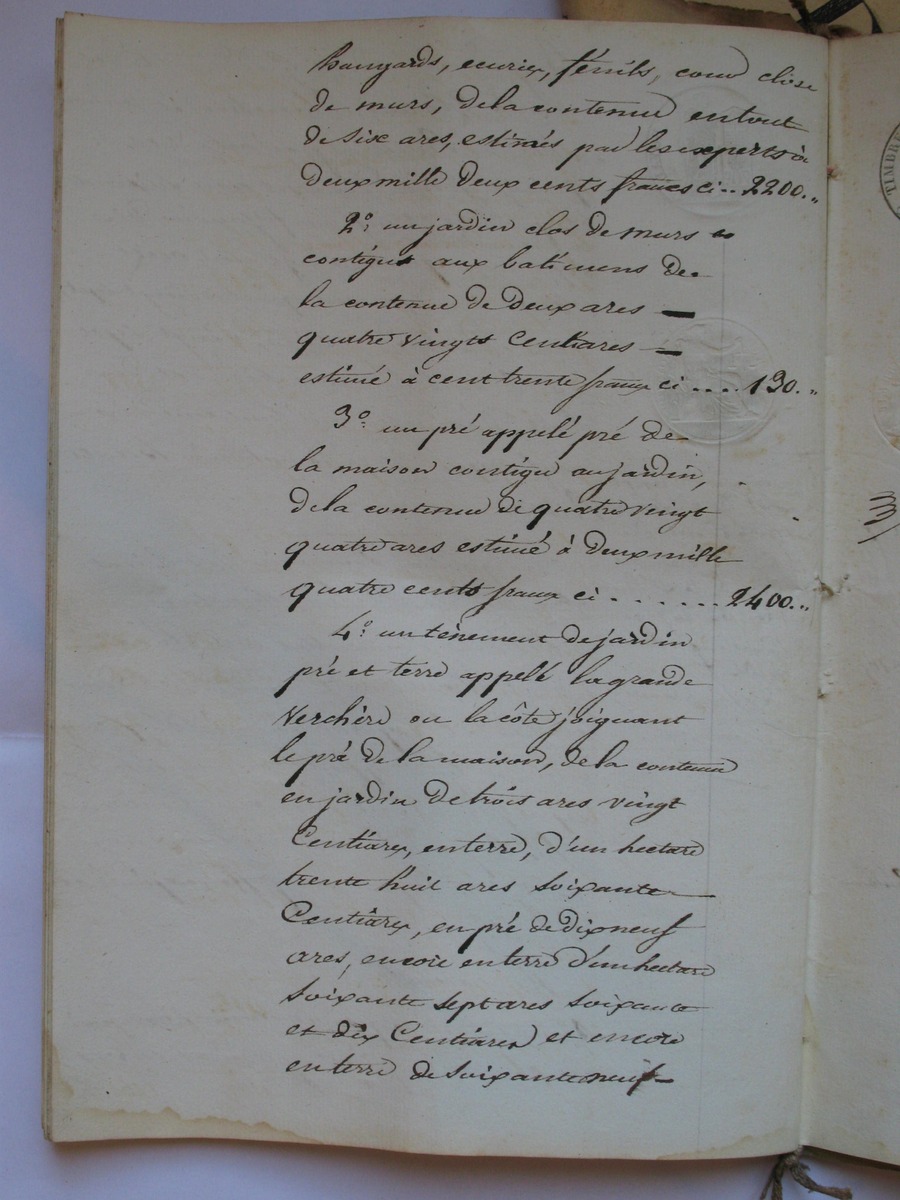 hangards, ecuries, fénils, cour close
de murs, de la contenue en tout
de six ares, estimés par les experts à
deux mille deux cents francs ci .. 2200. "
2.° un jardin clos de murs
contigus aux batimens de
la contenue de deux ares —
quatre vingts Centiares —
estimé à cent trente francs ci .... 130. "
3.° un pré appelé pré de
la maison contigu au jardin,
de la contenue de quatre vingt
quatre ares estimé à deux mille
quatre cents francs ci . . . . . . 2400. "
4.° un tènement de jardin
pré et terre appelé la grande
Verchère ou la côte joignant
le pré de la maison, de la contenue
en jardin de trois ares vingt
Centiares, en terre, d'un hectare
trente huit ares soixante
Centiares, en pré de dix neuf
ares, encore en terre d'un hectare
soixante sept ares soixante
et dix Centiares et encore
en terre de soixante neuf —
TIMBRE